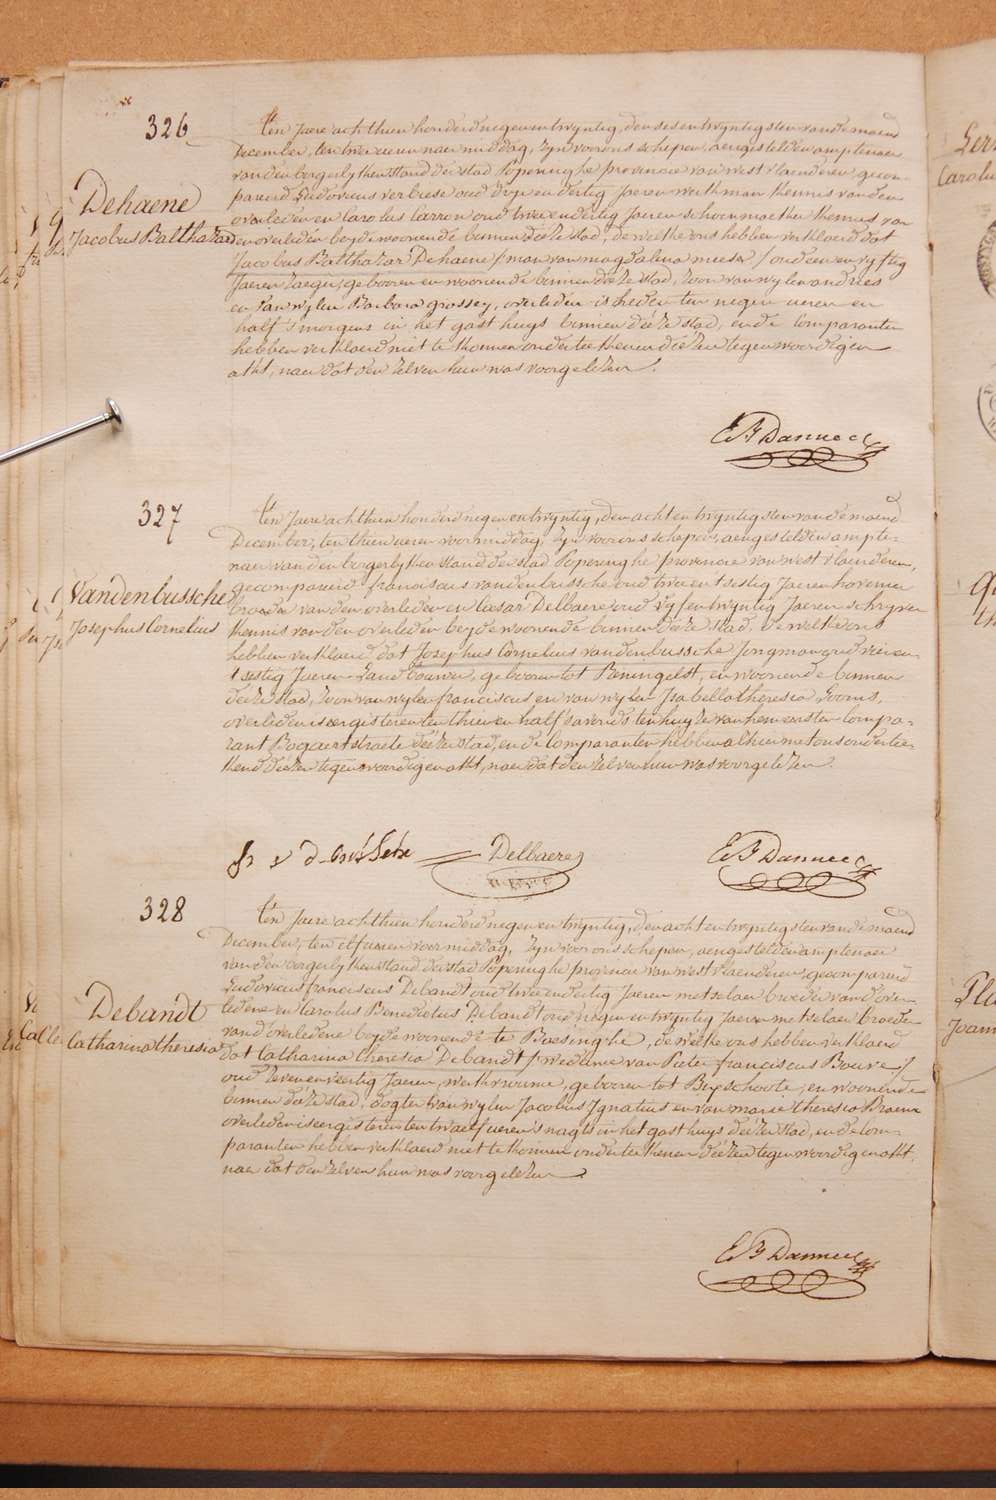 326
Ten Jaere achthien honderd negen en twyntig, den ses en twyntigsten van de maend
December, ten twee ueren naer middag, zyn voor ons schepen, aengestelden amptenaer
van den borgerlyken stand der stad Poperinghe provincie van west vlaenderen, gecom-
Dehaene
Jacobus Balthazar
pareerd Ludovicus verbeke oud dry en dertig Jaeren werkman kennis van den
overleden en Carolus Carron oud twee en dertig Jaeren schoenmaeker kennis van
den overleden beyde woonende binnen deeze stad, de welke ons hebben verklaerd dat
Jacobus Balthazar Dehaene / man van magdalena meese / oud een en vyftig
Jaeren zaeger, gebooren en woonende binnen deeze stad, zoon van wylen andries
en van wylen Barbara grossey, overleden is heden ten negen ueren en
half 's morgens in het gasthuys binnen deeze stad, ende Comparanten
hebben verklaerd niet te konnen onderteekenen deezen tegenwoordigen
akt, naer dat den zelven hun was voorgelezen.
E F Dannee
327
Ten Jaere achthien honderd negen en twyntig, den acht en twyntigsten van de maend
December, ten thien ueren voormiddag, zyn voor ons schepen, aengestelden ampte-
naer van den borgerlyken stand der stad Poperinghe provincie van west vlaenderen,
Vandenbussche
Josephus Cornelius
gecompareerd franciscus vandenbussche oud twee en t sestig Jaeren hovenier
broeder van den overleden en Cæsar Delbaere oud vyf en twyntig Jaeren schryver
kennis van den overleden beyde woonende binnen deeze stad, de welke ons
hebben verklaerd dat Josephus Cornelius vandenbussche Jongman oud vier en
t sestig Jaeren Landbouwer, gebooren tot Reningelst, en woonende binnen
deeze stad, zoon van wylen franciscus en van wylen Isabella theresia Looms,
overleden is eergisteren ten thien en half 's avonds ten huyze van hem eersten Compa-
rant Bogaertstraete deeze stad, ende Comparanten hebben alhier met ons ondertee-
kend deezen tegenwoordigen akt, naer dat den zelven hun was voorgelezen.
Delbaere
E F Dannee
328
Ten Jaere achthien honderd negen en twyntig, den acht en twyntigsten van de maend
December, ten elf ueren voormiddag, zyn voor ons schepen, aengestelden amptenaer
van den borgerlyken stand der stad Poperinghe provincie van west vlaenderen, gecompareerd
Debandt
Catharina theresia
Ludovicus franciscus Debandt oud twee en dertig Jaeren metselaer broeder van d'over-
ledene en Carolus Benedictus Debandt oud negen en twyntig Jaeren metselaer broeder
van d'overledene beyde woonende te Boesinghe, de welke ons hebben verklaerd
dat Catharina theresia Debandt / weduwe van Pieter franciscus Bouve /
oud zeven en veertig Jaeren, werkvrouwe, gebooren tot Bixschoote, en woonende
binnen deeze stad, dogter van wylen Jacobus Ignatius en van marie theresia Braem
overleden is eergisteren ten twaelf ueren 's nagts in het gasthuys deezer stad, ende Com-
paranten hebben verklaerd niet te konnen onderteekenen deezen tegenwoordigen akt,
naer dat den zelven hun was voorgelezen.
E F Dannee